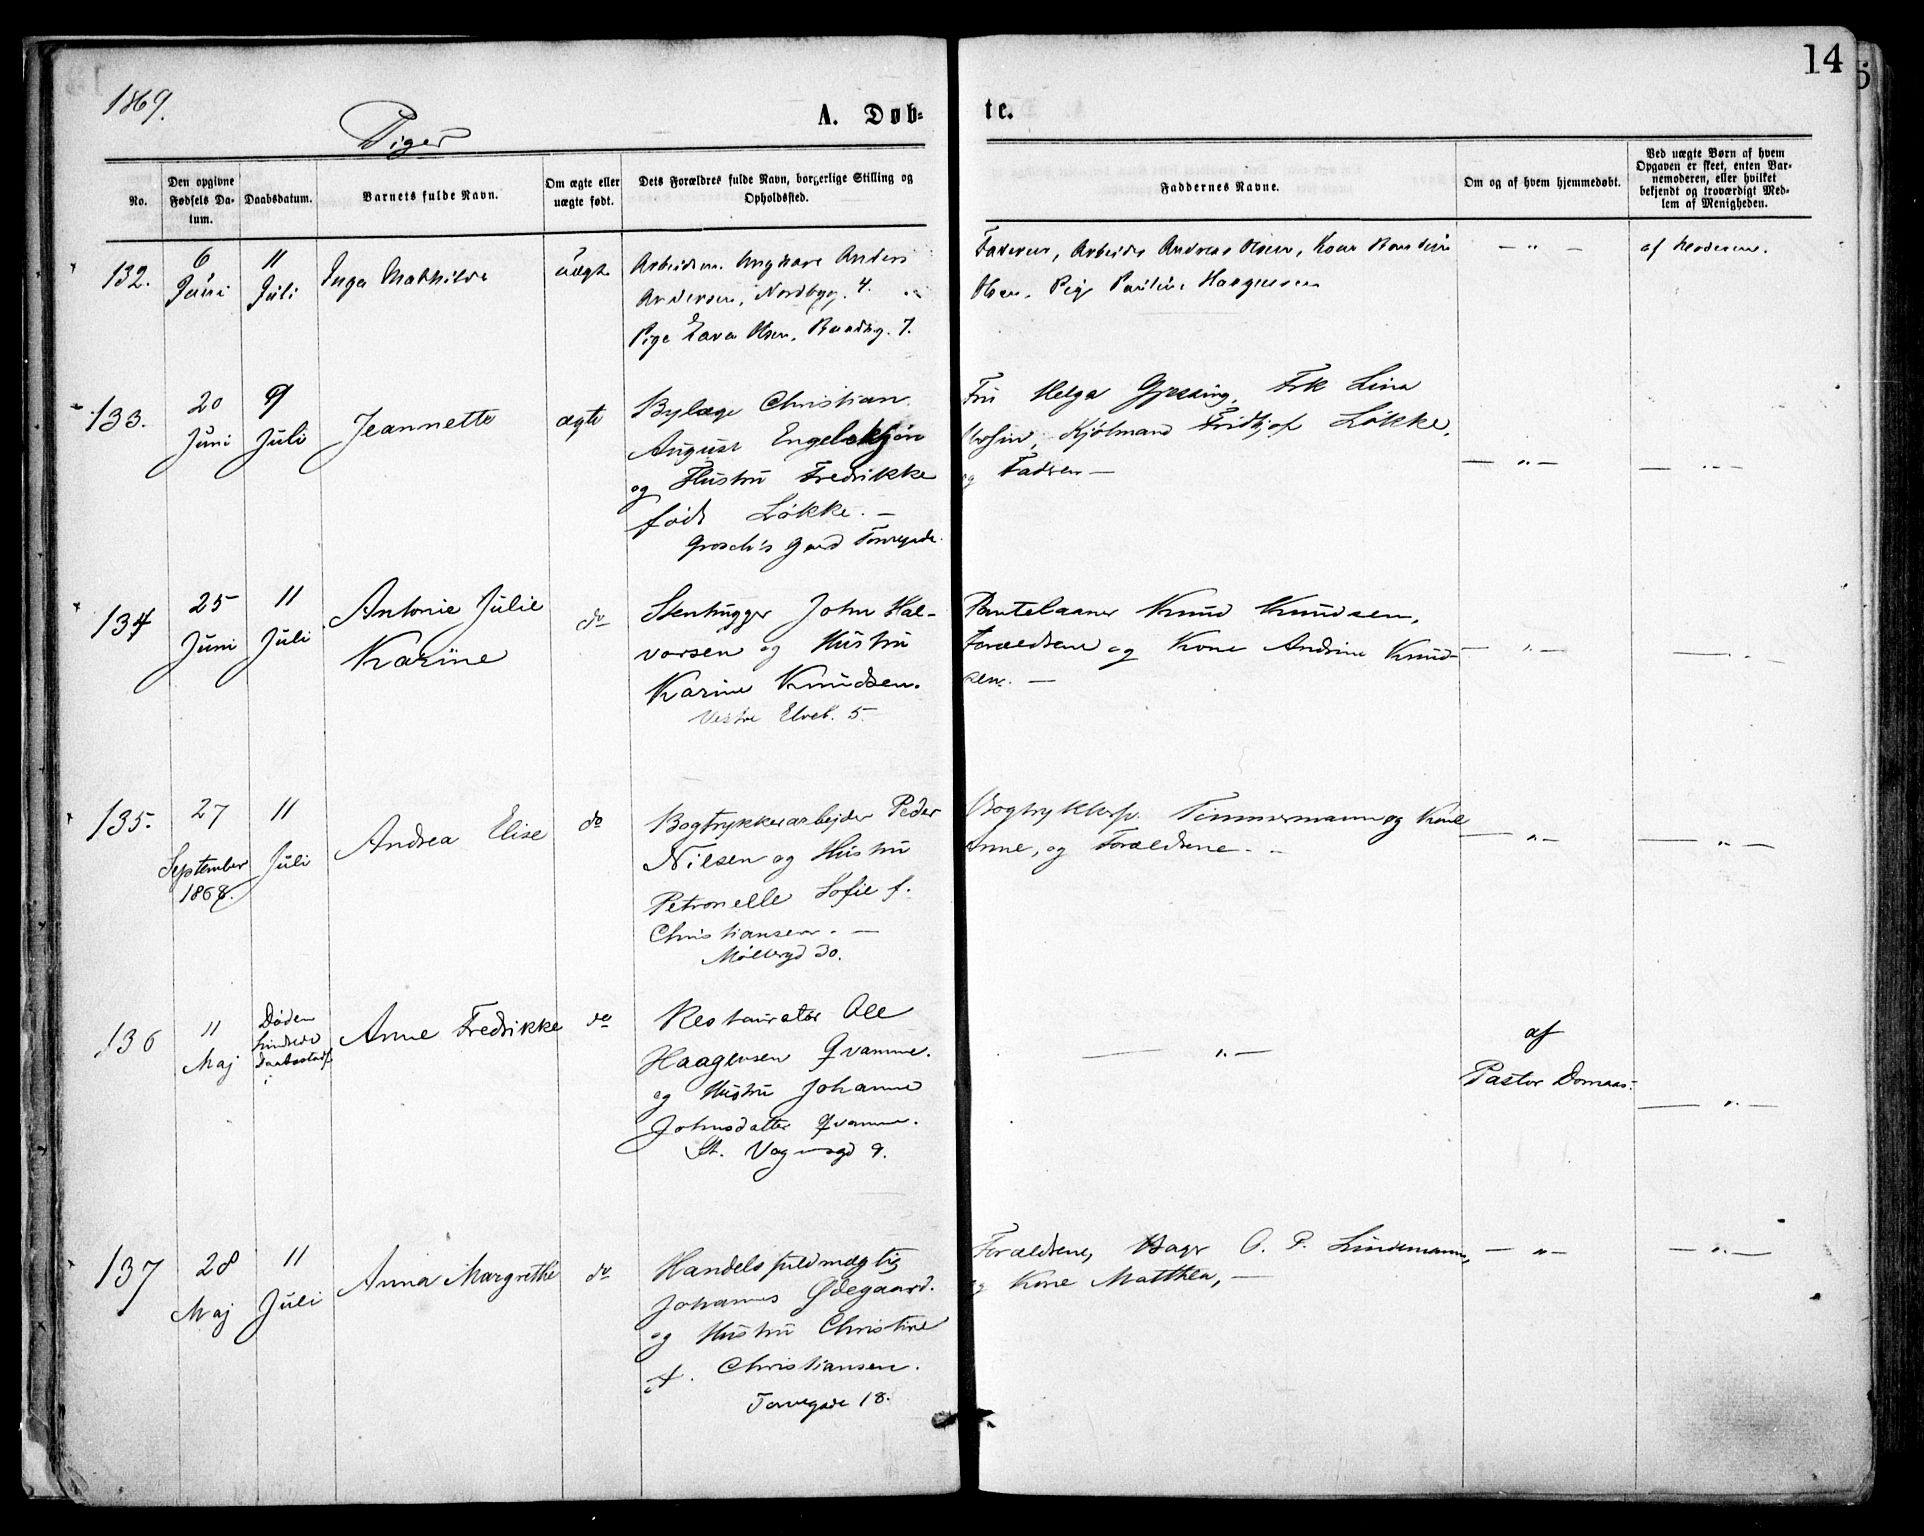 14
1869.
Piger
A. Døb-
te.
No.
Den opgivne
Fødsels Da-
tum.
Daabsdatum.
Barnets fulde Navn.
Om ægte eller
uægte født.
Dets Forældres fulde Navn, borgerlige Stilling og
Opholdssted.
Faddernes Navne.
Om og af hvem hjemmedøbt.
Ved uægte Børn af hvem
Opgaven er skeet, enten Bar-
nemoderen, eller hvilket
bekjendt og troværdigt Med-
lem af Menigheden.
132.
6
Juni
11
Juli
Inga Mathilde
uægte
Arbeidsm. Ungkarl Anders
Andersen, Nordbyg. 4.
Pige Olsen,
Faderen, Arbeider Andreas Olsen, Kone
Olsen, Pige
— " —
af Moderen.
133.
20
Juni
9
Juli
Jeannette
ægte
Bylæge Christian
August Engelskjøn
og Hustru Fredrikke
født Løkke. —
Grosch's Gaard Torvegade.
Fru Helga Gjessing, Frk Lina
Kjølmand Fridtjof Løkke,
og Faderen —
— " —
— " —
134
25
Juni
11
Juli
Antonie Julie
Karine
do
Stenhugger John Hal-
vorsen og Hustru
Karine Knudsen.
Vestre Elveb. 5.
Pantelaaner Knud Knudsen,
Forældrene og Kone Andrine Knud-
sen. —
— " —
— " —
135.
27
September
1868.
11
Juli
Andrea Elise
do
Bogtrykkerarbejder Peder
Nilsen og Hustru
Petronelle Sofie f.
Christiansen. —
Møllergd 30.
Timmermann og Kone
Anne, og Forældrene. —
— " —
— " —
136
11
Maj
Døden
hindrede
Daabsstadf.
Anne Fredrikke
do
Restauratør Ole
Haagensen Qvamme.
og Hustru Johanne
Johnsdatter Qvamme.
St. Vognmgd 9.
— " —
af
Pastor Domaas.
— " —
137
28
Maj
11
Juli
Anna Margrethe
do
Handelsfuldmægtig
Johannes Ødegaard.
og Hustru Christine
f. Christiansen.
Torvegade 18.
Forældrene, Bager O. P. Lindemann,
og Kone Matthea, —
— " —
— " —